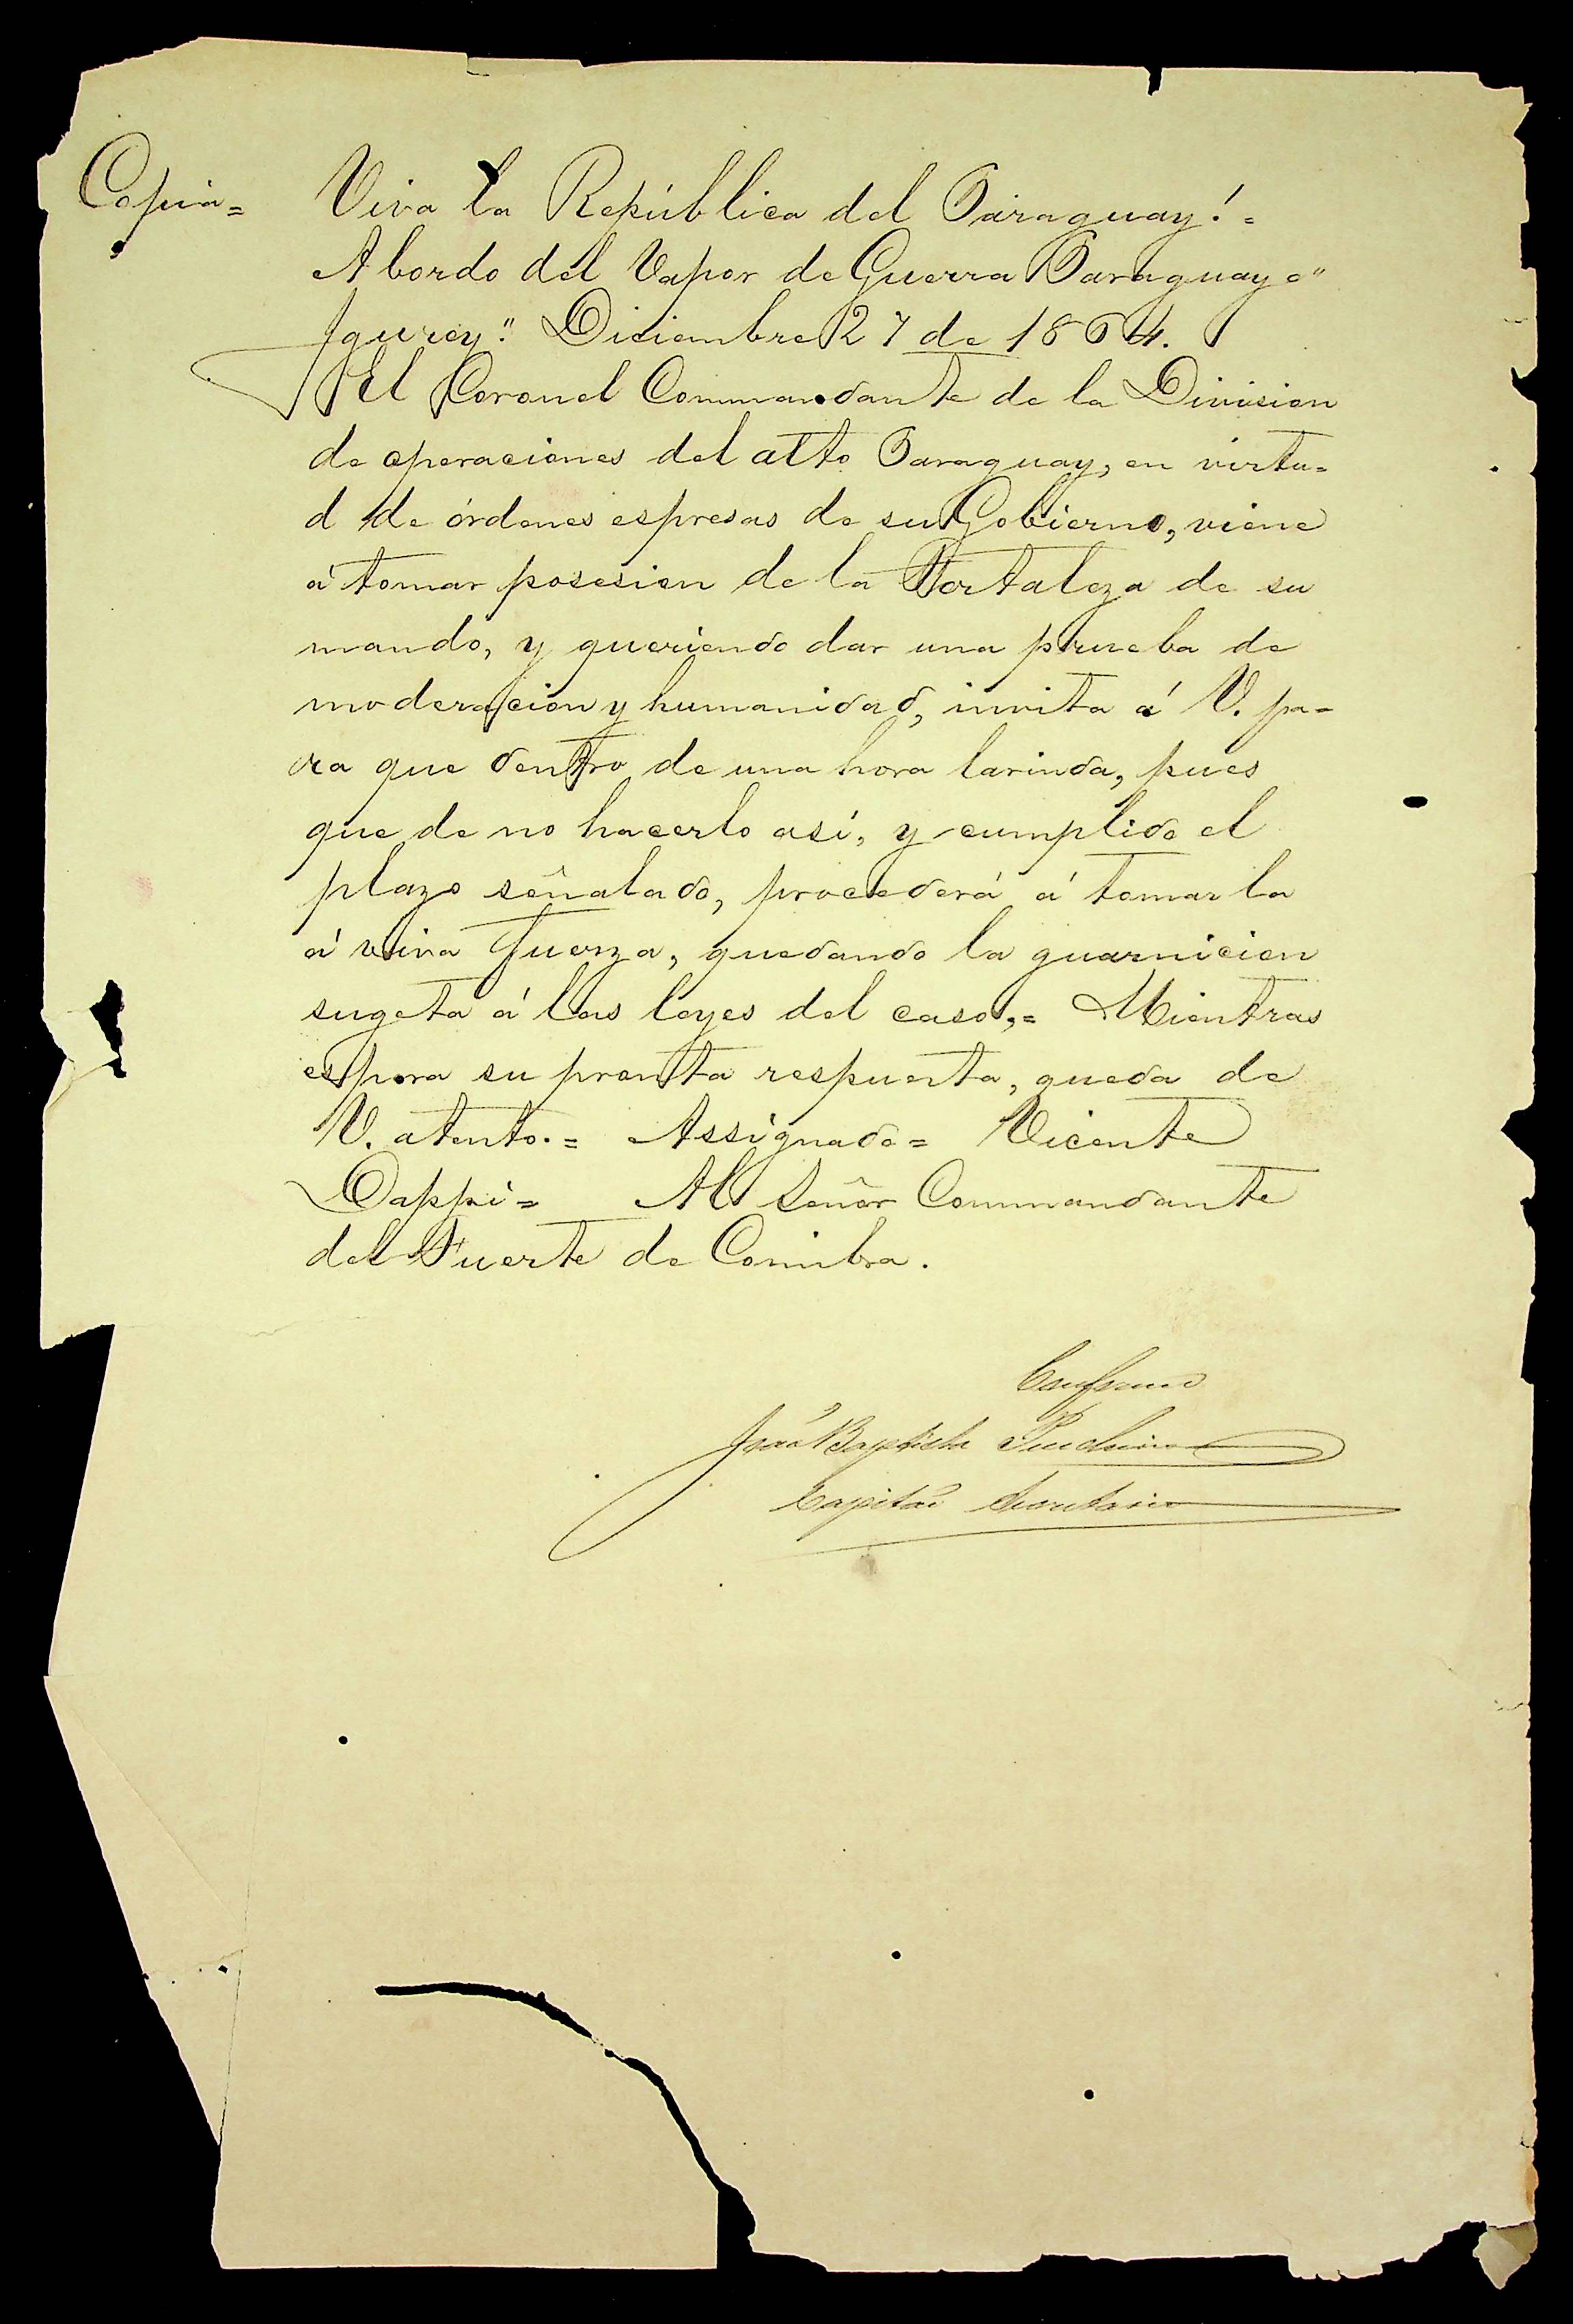 Copia= Viva la República del Paraguay!=
Abordo del Vapor de Guerra Paraguayo "
Igurey". Diciembre 27 de 1864.
El Coronel Commandante de la Division
de operaciones del alto Paraguay, en virtu=
d de órdenes espresas de su Gobierno, viene
á tomar posesion de la Fortaleza de su
mando, y queriendo dar una prueba de
moderacion y humanidad, invita á V. pa=
ra que dentro de una hora larinda, pues
que de no hacerlo así, y cumplido el
plazo señalado, procederá á tomarla
á viva fuerza, quedando la guarnicion
sugeta á las leyes del caso,= Mientras
espera su pronta respuesta, queda de
V. atento.= Assignado= Vicente
Dappi= Al Señor Commandante
del Fuerte de Coimbra.
Conforme
João Baptista
Capitão Secretario